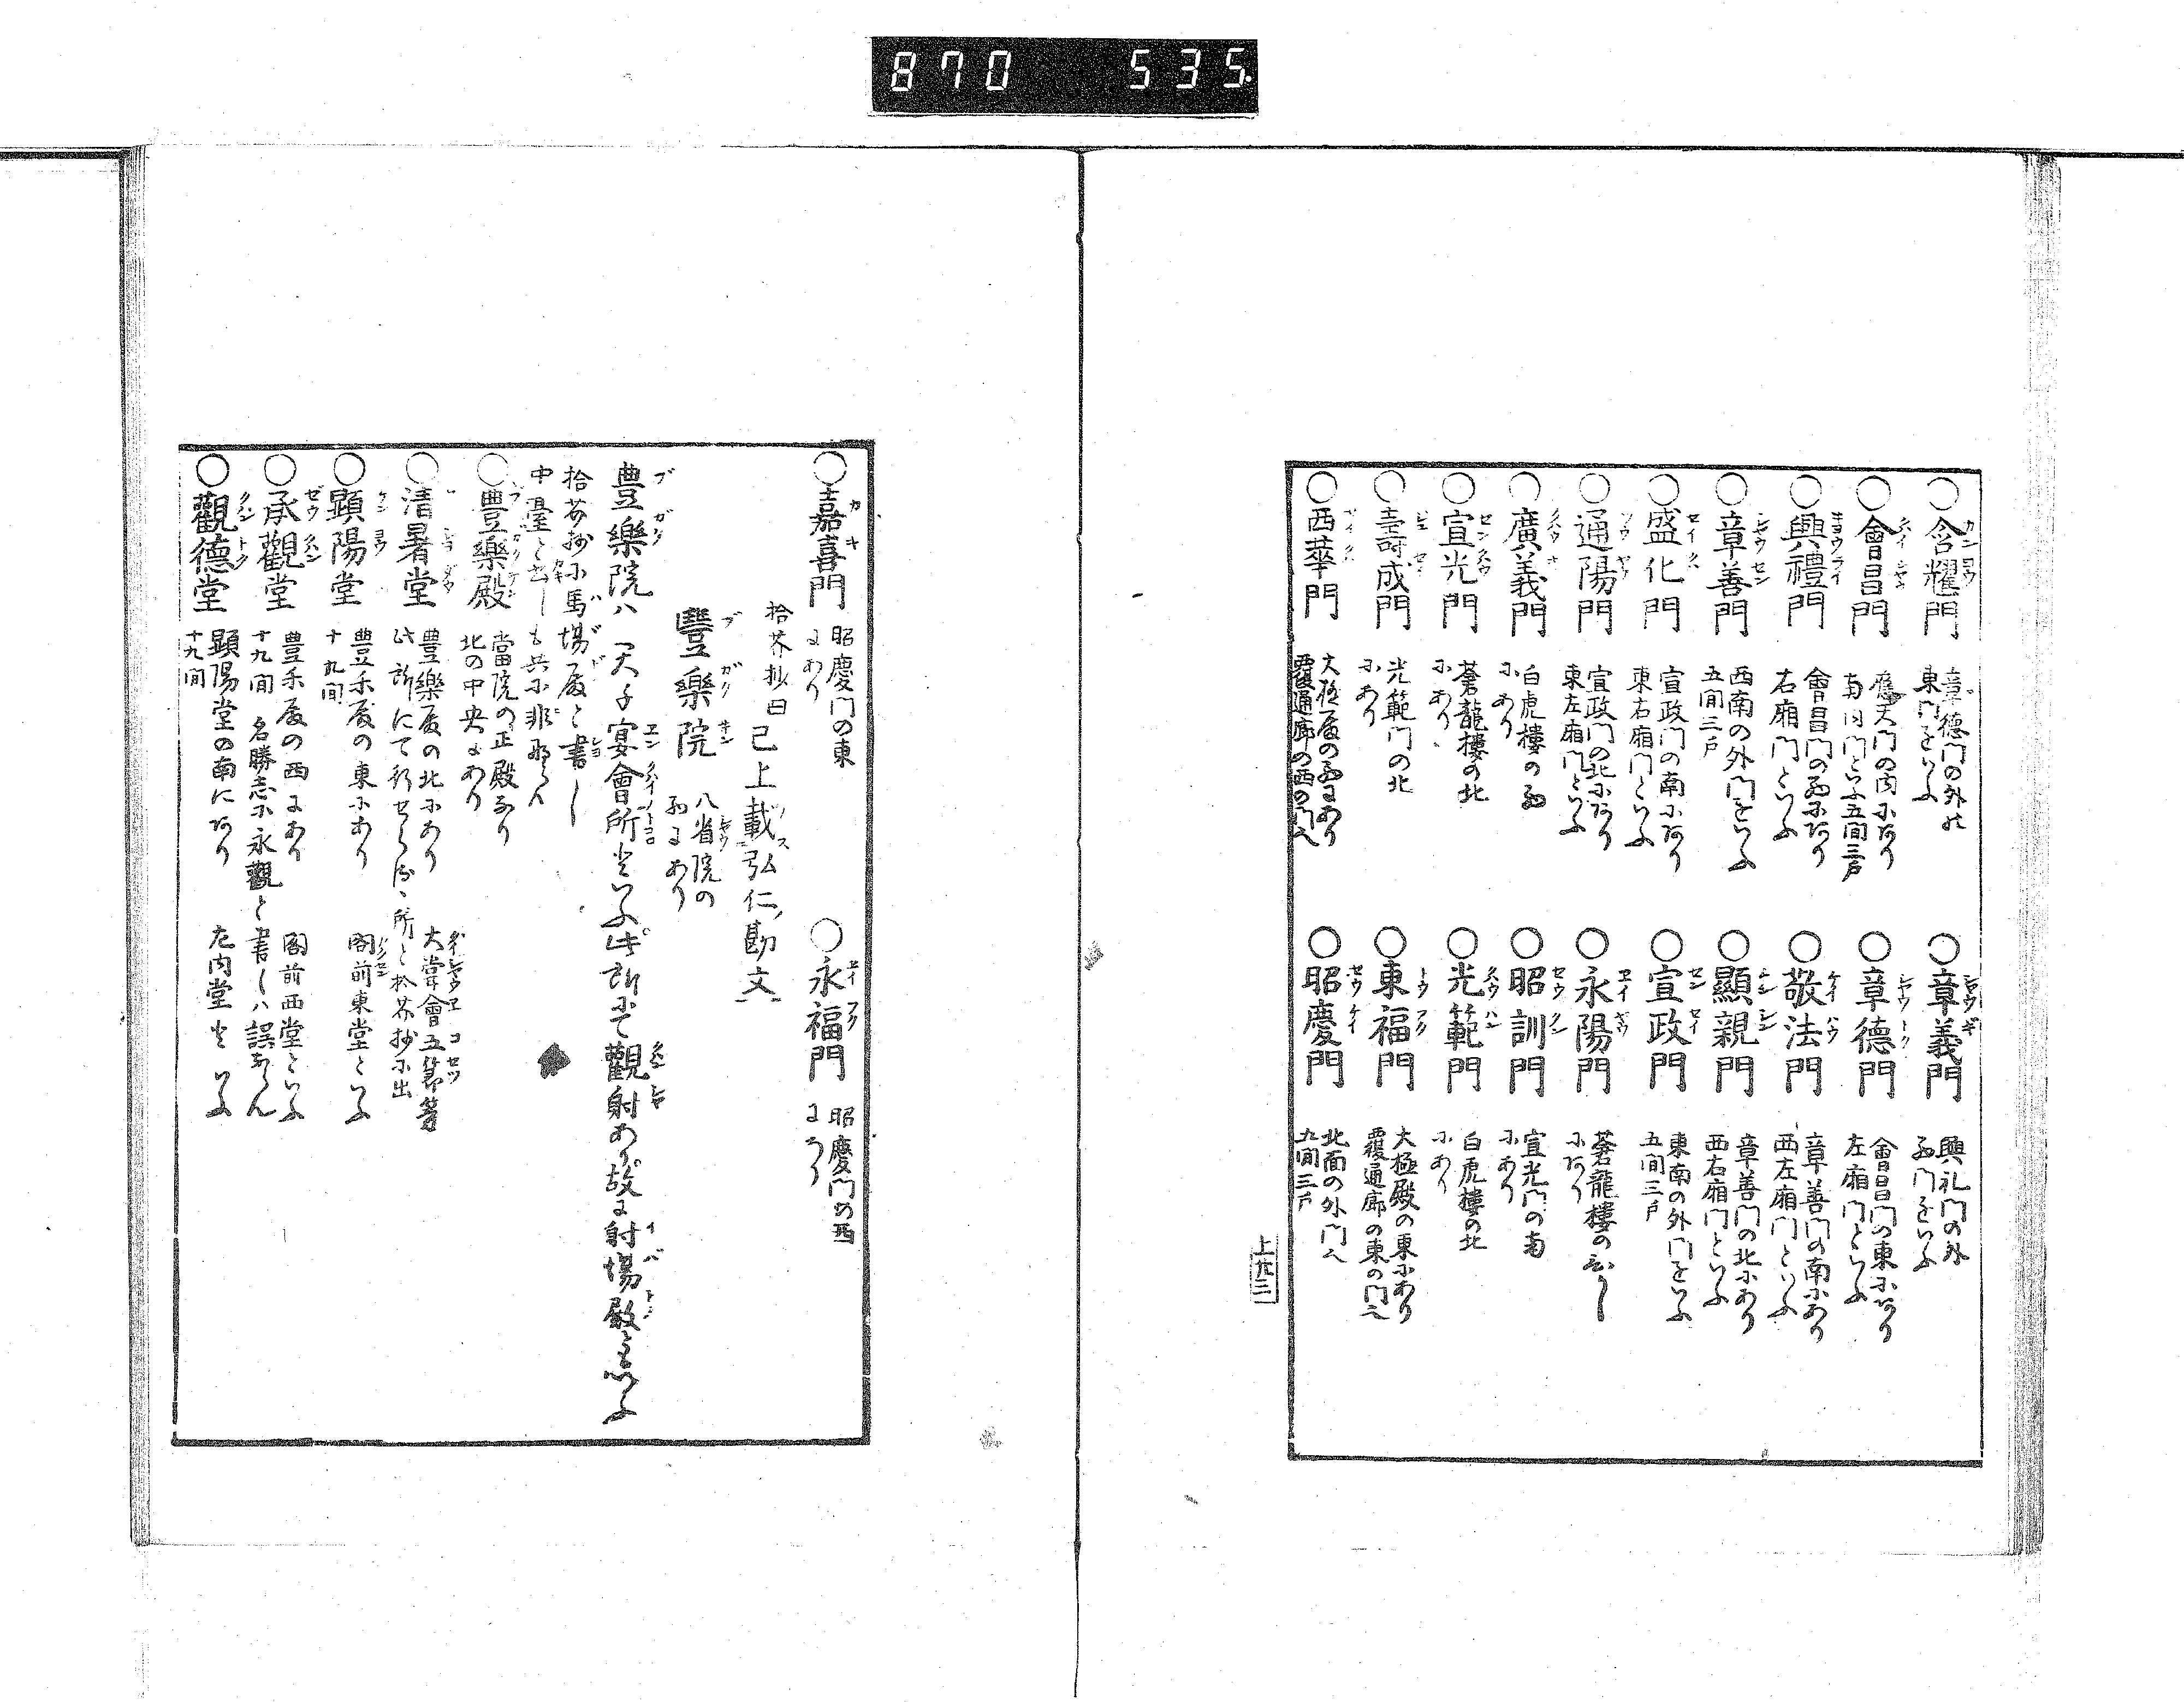 870 535.
○含耀門 章德門の外の東門をいふ
○章義門 興礼門の外西門をいふ
○會昌門 應天門の内にあり南内門といふ五間三戸
○章德門 會昌門の東にあり左廂門といふ
○興禮門 會昌門の西にあり右廂門といふ
○敬法門 章善門の南にあり西左廂門といふ
○章善門 西南の外門をいふ五間三戸
○顯親門 章善門の北にあり西右廂門といふ
○盛化門 宣政門の南にあり東右廂門といふ
○宣政門 東南の外門をいふ五間三戸
○通陽門 宣政門の北にあり東左廂門といふ
○永陽門 蒼龍樓のにあり
○廣義門 白虎樓の西にあり
○昭訓門 宣光門の南にあり
○宣光門 蒼龍樓の北にあり
○光範門 白虎樓の北にあり
○壽成門 光範門の北にあり
○東福門 大極殿の東にあり覆通廊の東の門也
○西華門 大極殿の西にあり覆通廊の西の門也
○昭慶門 北面の外門也九間三戸
上
○嘉喜門 昭慶門の東にあり
○永福門 昭慶門の西にあり
拾芥抄曰已上載弘仁勘文
豐樂院 八省院の西にあり
豊樂院ハ天子宴會所をいふ此所にて觀射あり故に射場殿ともいふ
拾芥抄に馬場殿と書し
中臺と書しも共に非ならん
○豊樂殿 當院の正殿なり北の中央にあり
○清暑堂 豊樂殿の北にあり 大嘗會五節等此所にて行せらるゝ所と拾芥抄に出
○顕陽堂 豊楽殿の東にあり 閣前東堂といふ十九間
○承觀堂 豊楽殿の西にあり 閣前西堂といふ十九間 名勝志に永觀と書しハ誤ならん
○觀德堂 顕陽堂の南にあり 左内堂をいふ十九間